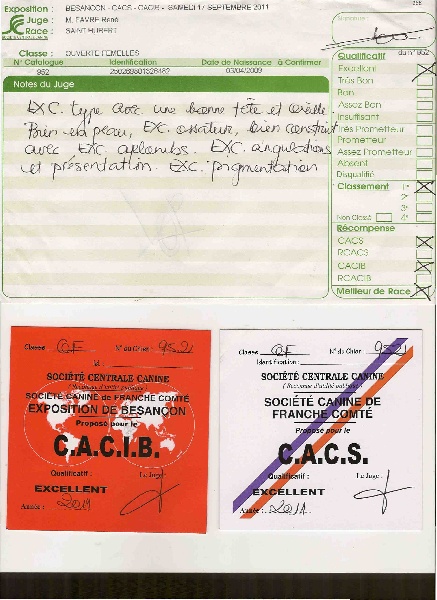 Exposition : BESANÇON - CACS - CACIB - SAMEDI 17 SEPTEMBRE 2011
Juge : M. FAVRE René
Race : SAINT HUBERT
Classe : OUVERTE FEMELLES
N° Catalogue Identification Date de Naissance à Confirmer
952 03/04/2009
Notes du Juge
EXC. type avec une bonne tête et oreille
Bien sa peau, EXC. ossature, bien construit
avec EXC. aplombs. EXC. angulations
et présentation. EXC. pigmentation
Signature
du n° 952
Qualificatif
Excellent
Très Bon
Bon
Assez Bon
Insuffisant
Très Prometteur
Prometteur
Assez Prometteur
Absent
Disqualifié
Classement 1e
2e
3e
Non Classé 4e
Récompense
CACS
RCACS
CACIB
RCACIB
Meilleur de Race
Classe OF N° du Chien 952
Id :
SOCIÉTÉ CENTRALE CANINE
(Reconnue d'utilité publique)
SOCIÉTÉ CANINE de FRANCHE COMTÉ
EXPOSITION DE BESANÇON
Proposé pour le
C.A.C.I.B.
Qualificatif : Le Juge :
EXCELLENT
Année : 2011
Classe OF N° du Chien 952
Identification :
SOCIÉTÉ CENTRALE CANINE
(Reconnue d'utilité publique)
SOCIÉTÉ CANINE DE
FRANCHE COMTÉ
Proposé pour le
C.A.C.S.
Qualificatif : Le Juge :
EXCELLENT
Année : 2011